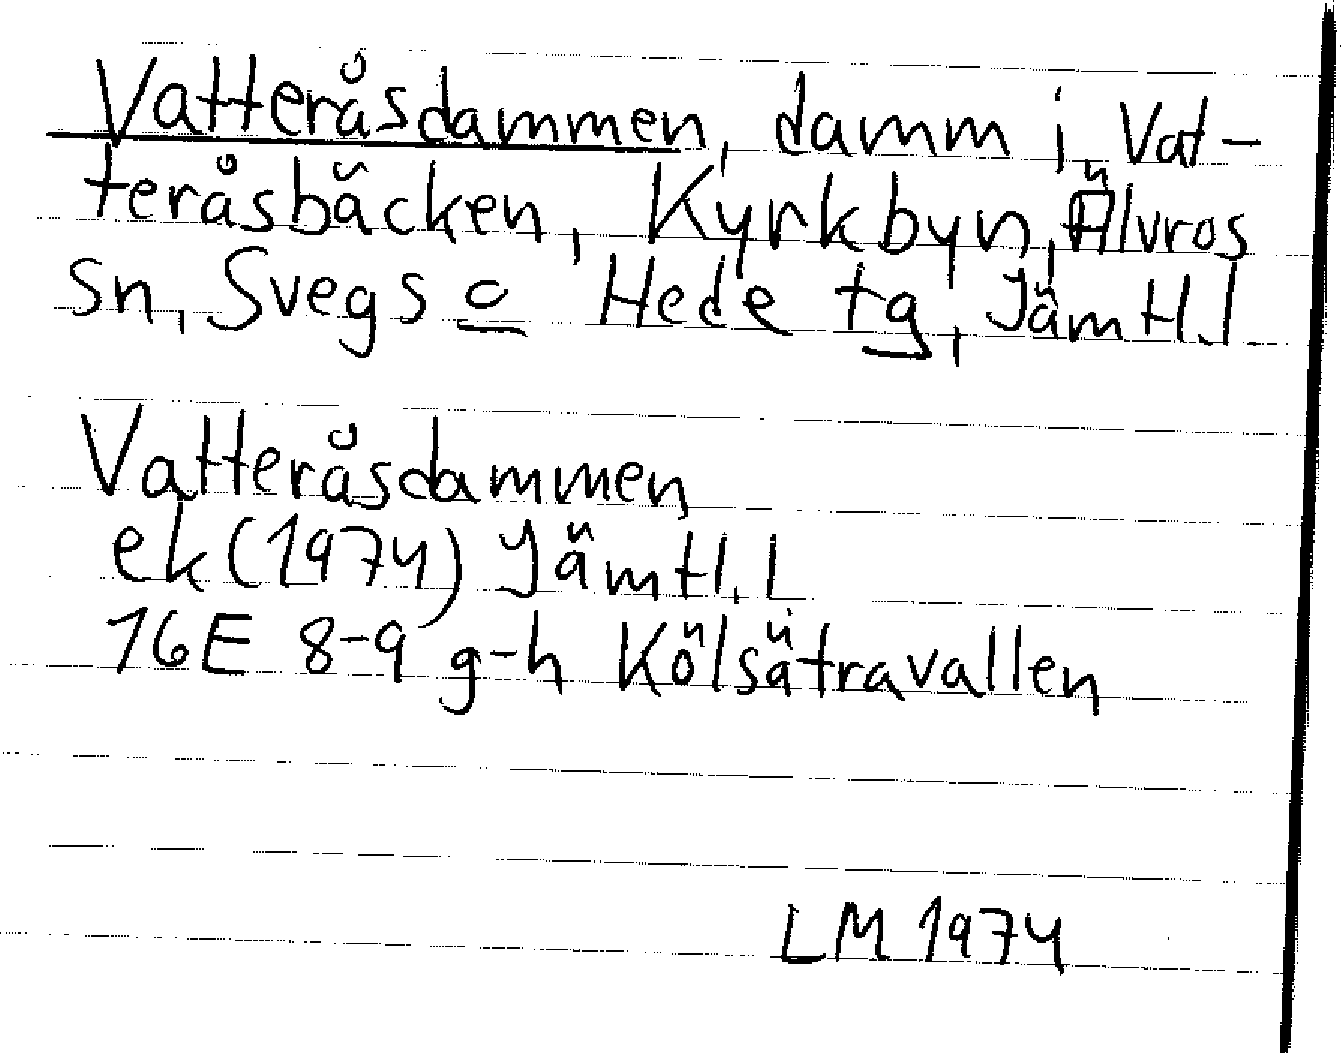 Vatteråsdammen, damm i Vat-
teråsbäcken, Kyrkbyn, Älvros
sn, Svegs o Hede tg, Jämtl.l
Vatteråsdammen
ek (1974) Jämtl.l
16E 8-9 g-h Kölsätravallen
LM 1974